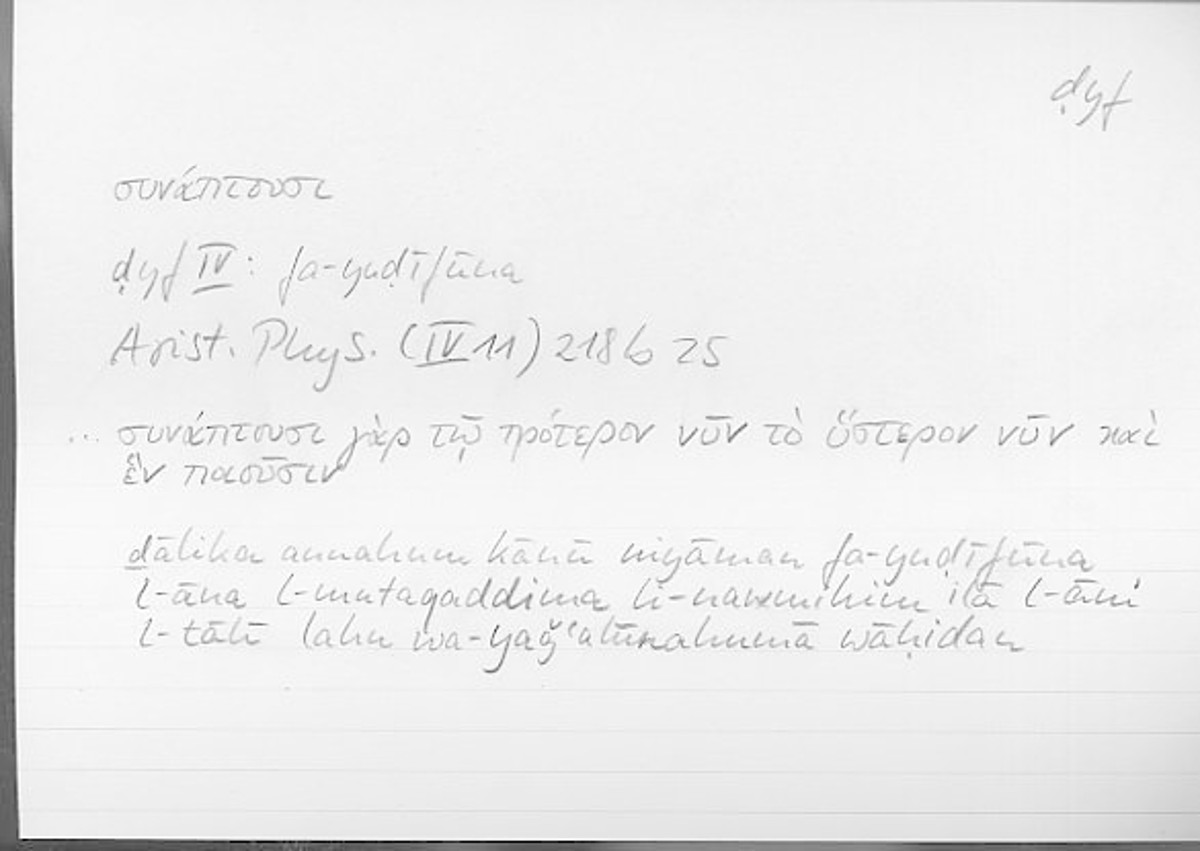 ḍyf
συνάπτουσι
ḍyf IV: fa-yuḍīfūna
Arist. Phys. (IV 11) 218 b 25
... συνάπτουσι γὰρ τῷ πρότερον νῦν τὸ ὕστερον νῦν καὶ
ἓν ποιοῦσιν
ḏālika annahum kānū niyāman fa-yuḍīfūna
l-āna l-mutaqaddima li-nawmihim ilā l-āni
l-tālī lahu wa-yaǧʿalūnahumā wāḥidan